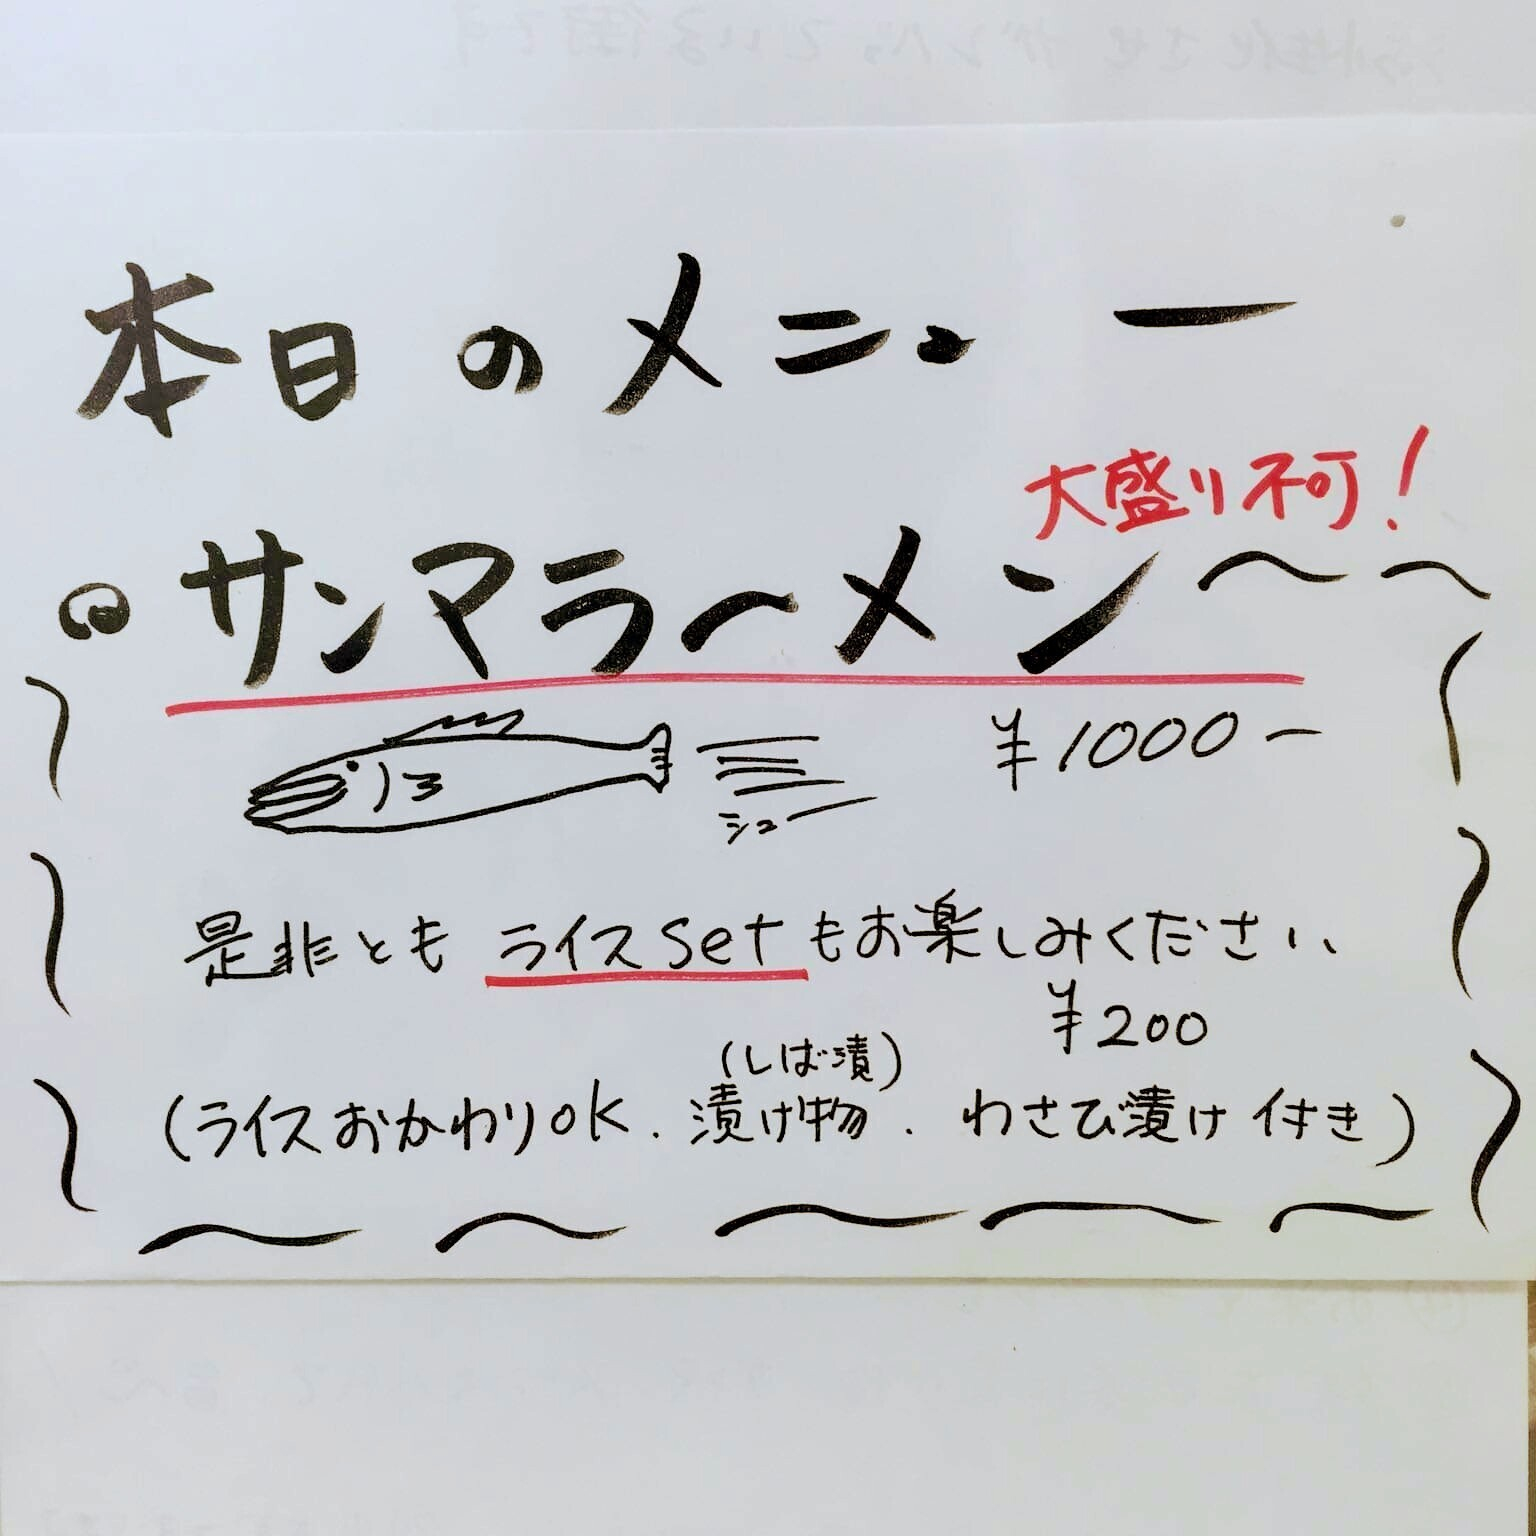 本日のメニュー
大盛り不可!
サンマラーメン
¥1000ー
シュー
是非とも ライスset もお楽しみください、
¥200
(しば漬)
(ライスおかわりOK. 漬け物. わさび漬け付き)